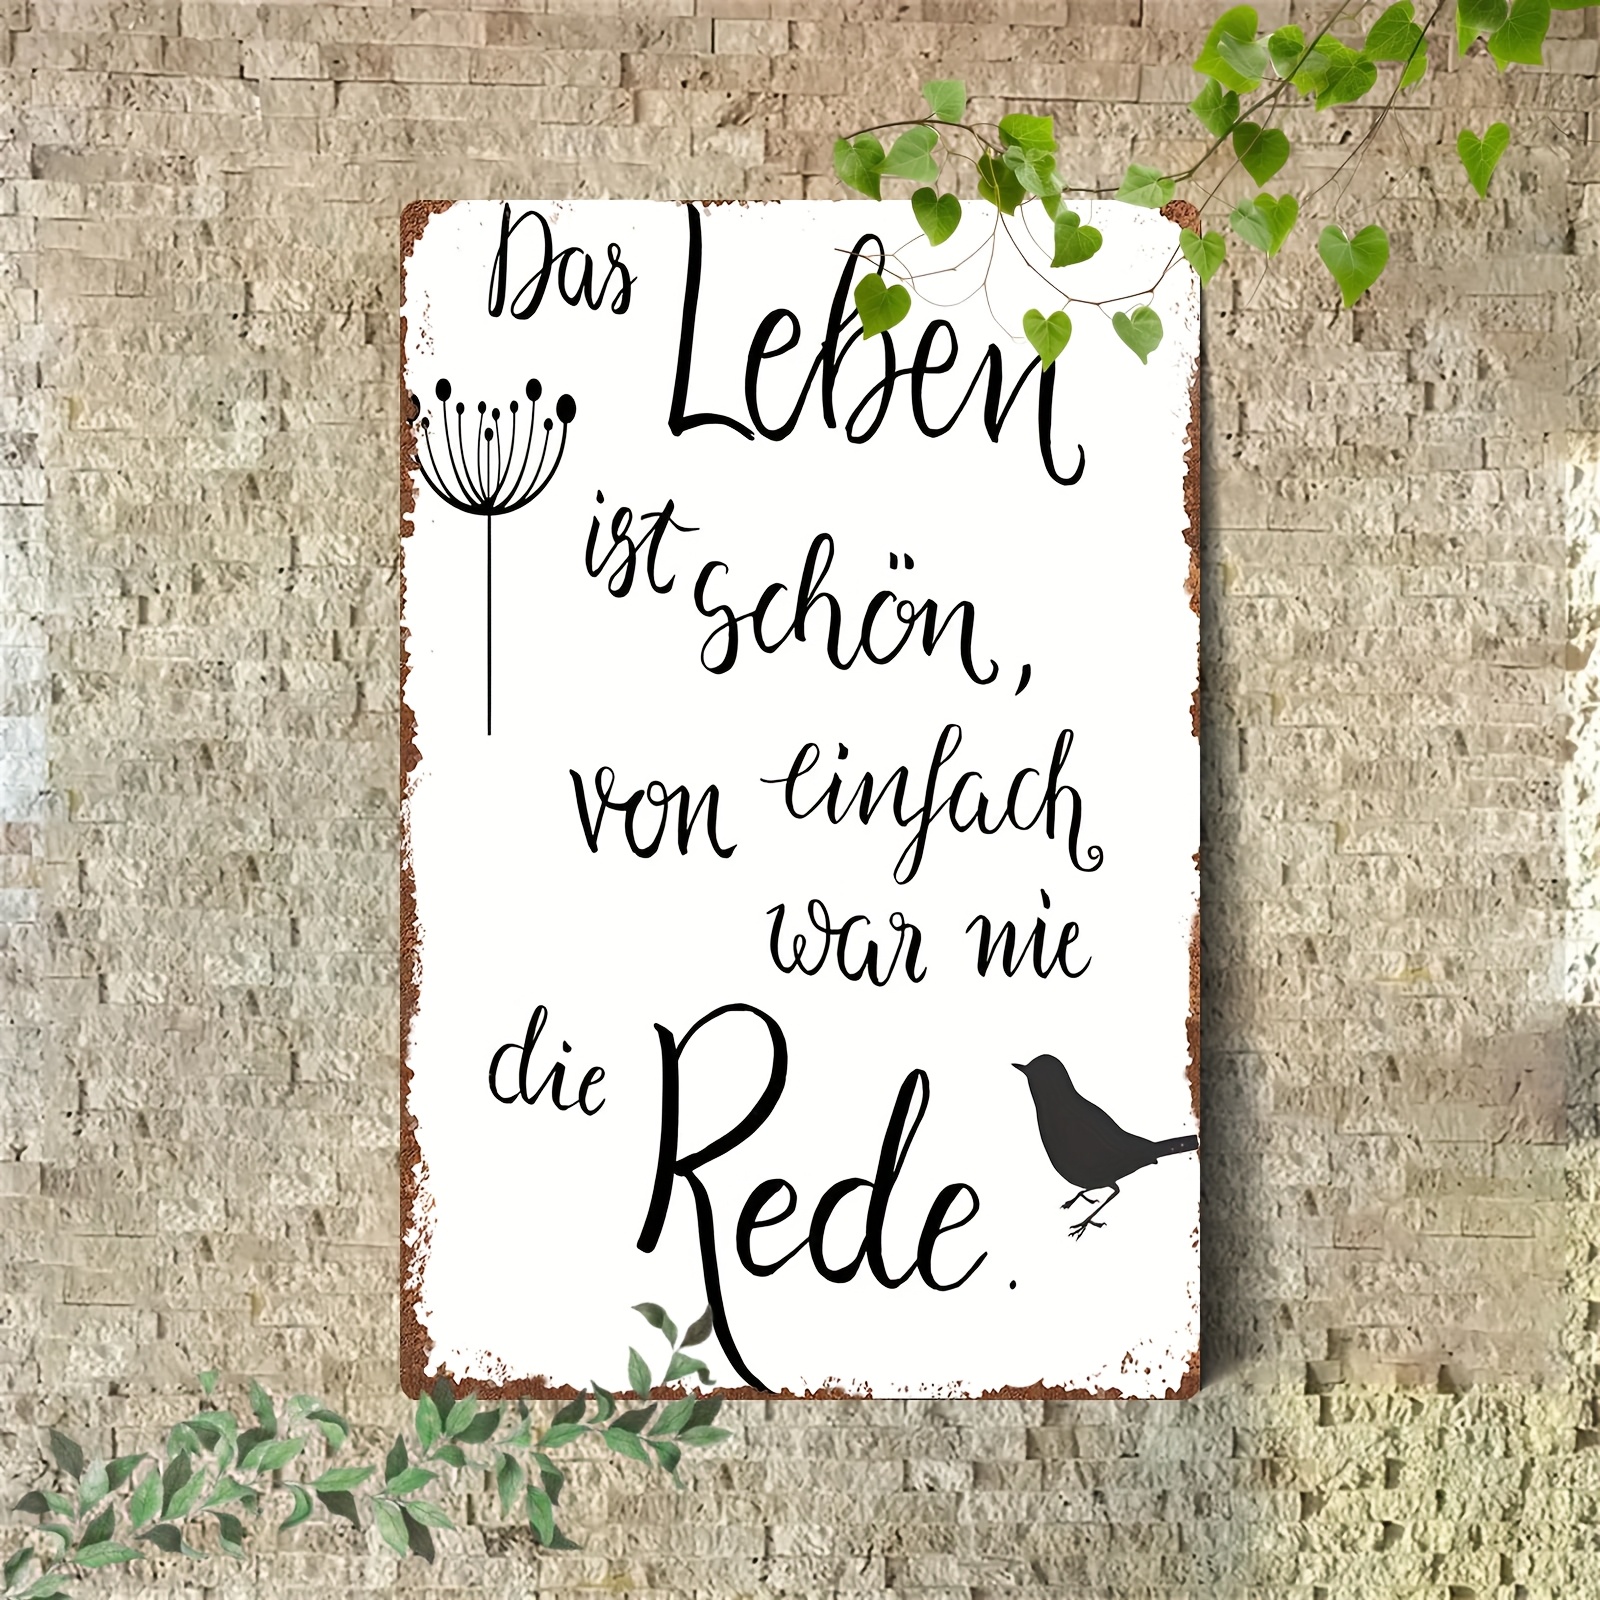 Das Leben
ist schön,
von einfach
war nie
die Rede.